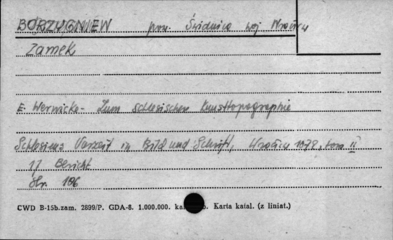 BORZYGNIEW pow. Świdnica woj Wrocław
Zamek
E. Wernicke - Zum schlesischen Kunsttopographie
Schlesiens Vorzeit in Bild und Schrift, Wrocław tom II
17 Bericht
str. 196
CWD B-15b. zam. 2809/P. GDA-8. 1.000.000. Karta katal. (z liniat.)